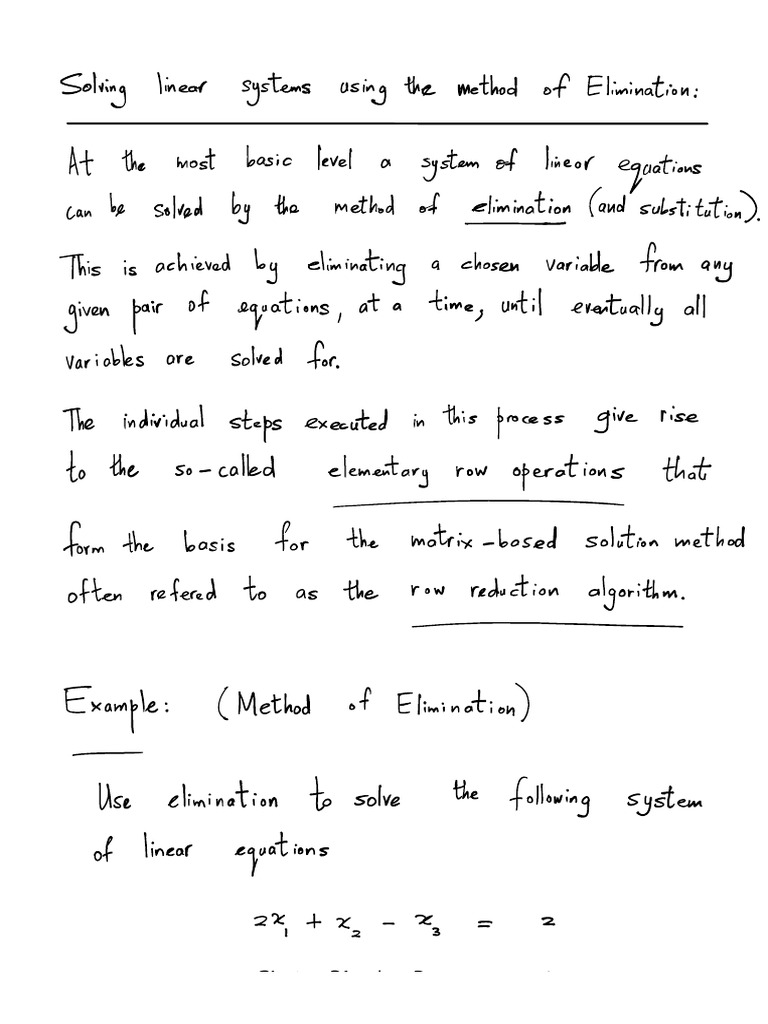 Solving linear systems using the method of Elimination:
At the most basic level a system of linear equations
can be solved by the method of elimination (and substitution).
This is achieved by eliminating a chosen variable from any
given pair of equations, at a time, until eventually all
variables are solved for.
The individual steps executed in this process give rise
to the so-called elementary row operations that
form the basis for the matrix-based solution method
often refered to as the row reduction algorithm.
Example: (Method of Elimination)
Use elimination to solve the following system
of linear equations
2x₁ + x₂ - x₃ = 2